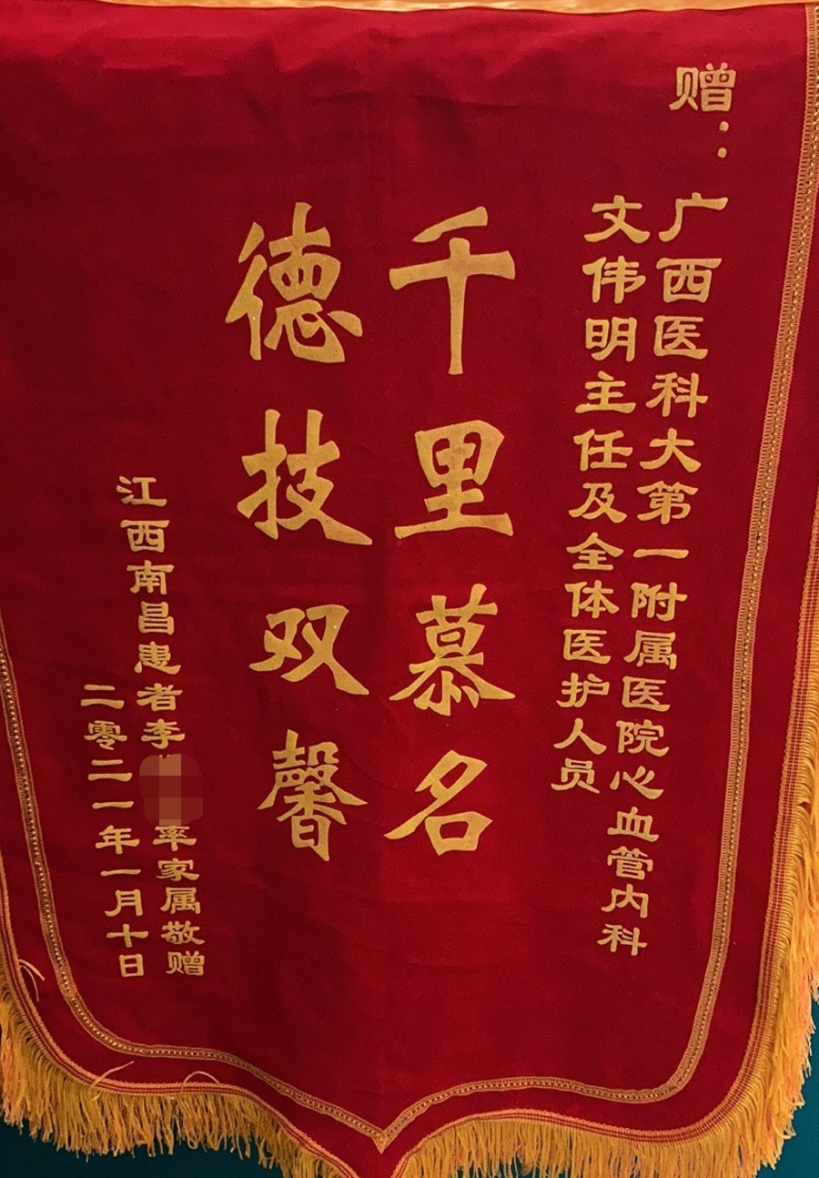 赠：
广西医科大第一附属医院心血管内科
文伟明主任及全体医护人员
千里慕名
德技双馨
江西南昌患者李率家属敬赠
二零二一年一月十日